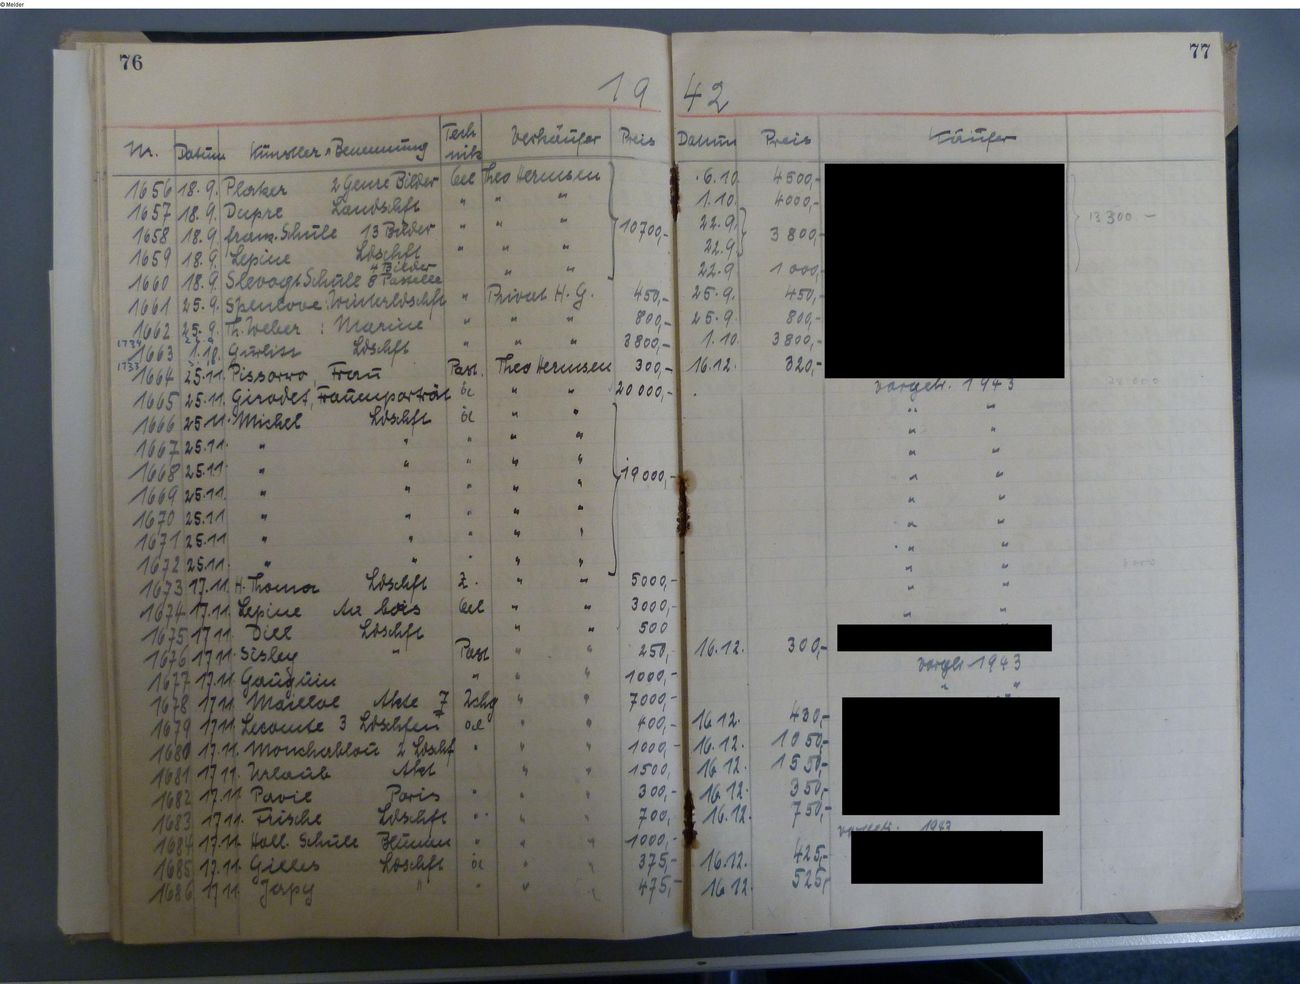 © Melder
76
77
19 42
Nr. Datum Künstler u. Benennung Technik Verkäufer Preis Datum Preis Käufer
1656 18.9. 2 Genre Bilder Oel Theo Hermsen 6.10. 4500,-
1657 18.9. Dupre Landschft " " " 1.10. 4000,-
1658 18.9. franz. Schule 13 Bilder " " " 10700,- 22.9. 3800,- 13300.-
1659 18.9. Lepine Ldschft " " " 22.9.
1660 18.9. Slevogt Schule 4 Bilder 8 Pastelle " " 22.9. 1000,-
1661 25.9. Winterldschft " Privat H. G. 450,- 25.9. 450,-
1662 25.9. Th. Weber : Marine " " " 800,- 25.9. 800,-
1734
1663 1.10. Gurlitt Ldschft " " " 3800,- 1.10. 3800,-
1733
1664 25.11. Pissarro, Frau Past. Theo Hermsen 300,- 16.12. 320,-
1665 25.11. Girodet, Frauenporträt öl " " 20000,- vorgetr. 1943
1666 25.11. Michel Ldschft öl " " " "
1667 25.11. " " " " " "
1668 25.11. " " " " 19000,- " "
1669 25.11. " " " " " "
1670 25.11 " " " " " "
1671 25.11 " " " " " "
1672 25.11. " " " " " "
1673 17.11. H. Thoma Ldschft Z. " " 5000,- " "
1674 17.11. Lepine Au bois Oel " " 3000,- " "
1675 17.11. Dill Ldschft " " 500
1676 17.11. Sisley " Past " " 250,- 16.12. 300,-
1677 17.11. Gauguin " " " 1000,- vorgetr. 1943
1678 17.11. Maillol Akte 7 Zchg " " 7000,- " "
1679 17.11. Lecomte 3 Ldschften öl " " 400,- 16.12. 430,-
1680 17.11. Monchablon 2 Ldschf " " " 1000,- 16.12. 1050,-
1681 17.11. Urlaub Akt " " 1500,- 16.12. 1550,-
1682 17.11. Pavil Paris " " " 300,- 16.12. 350,-
1683 17.11. Frische Ldschft " " " 700,- 16.12. 750,-
1684 17.11. Holl. Schule Blumen " " " 1000,- 1943
1685 17.11. Gilles Ldschft öl " " 375,- 16.12. 425,-
1686 17.11. Japy " " " " 475,- 16.12. 525,-